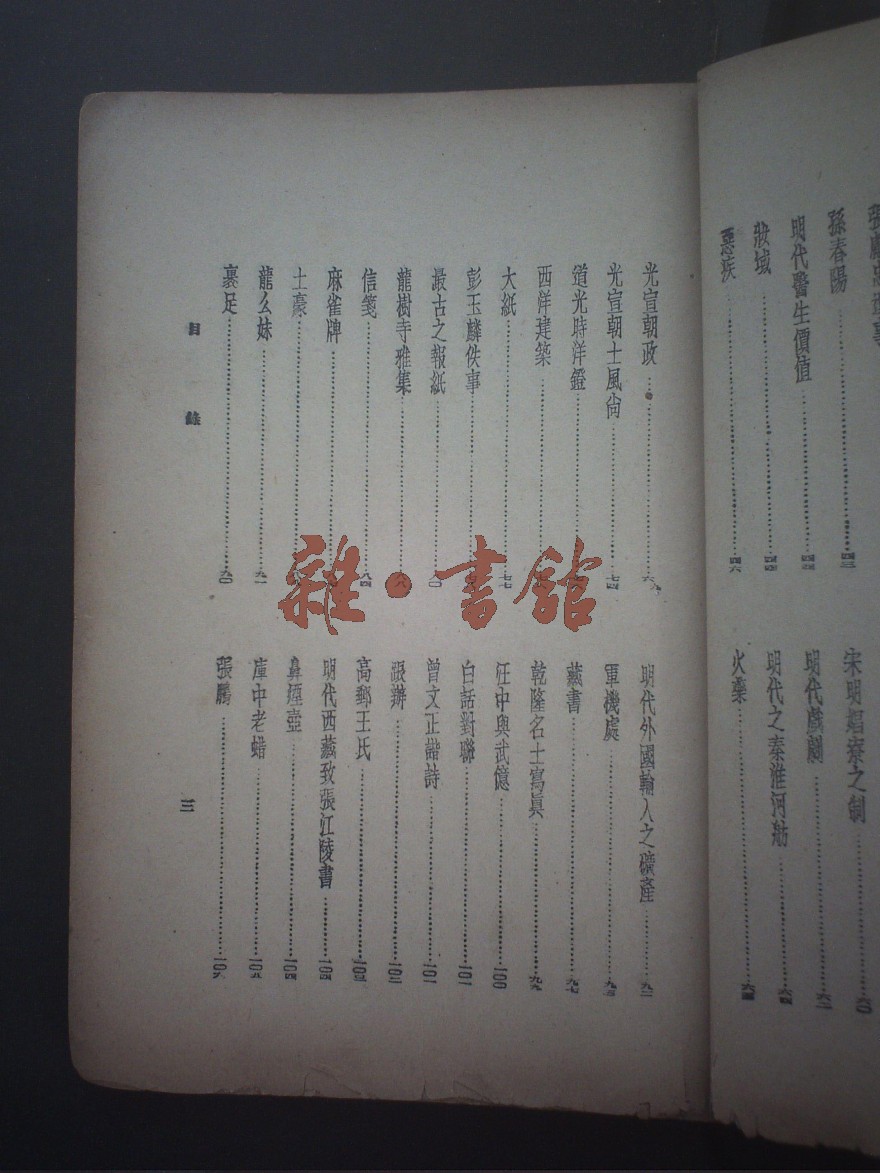 孫春陽……四三
明代醫生價值……四四
妝域……四五
惡疾……四六
宋明娼寮之制……六〇
明代戲劇……六一
明代之秦淮河舫……六四
火藥……六五
光宣朝政……六九
光宣朝士風尙……七四
道光時洋鐙
西洋建築
大紙……七七
彭玉麟佚事
最古之報紙……八〇
龍樹寺雅集
信箋……八四
麻雀牌
土豪
龍么妹……九一
裹足……九〇
明代外國輸入之礦產……九二
軍機處……九三
藏書……九七
乾隆名士寫眞……九九
汪中與武億……一〇〇
白話對聯……一〇一
曾文正諧詩……一〇一
跟辦……一〇二
高郵王氏……一〇三
明代西藏致張江陵書……一〇四
鼻煙壺……一〇四
庫中老蜡……一〇五
張鵬……一〇六
目錄
三
雜·書館